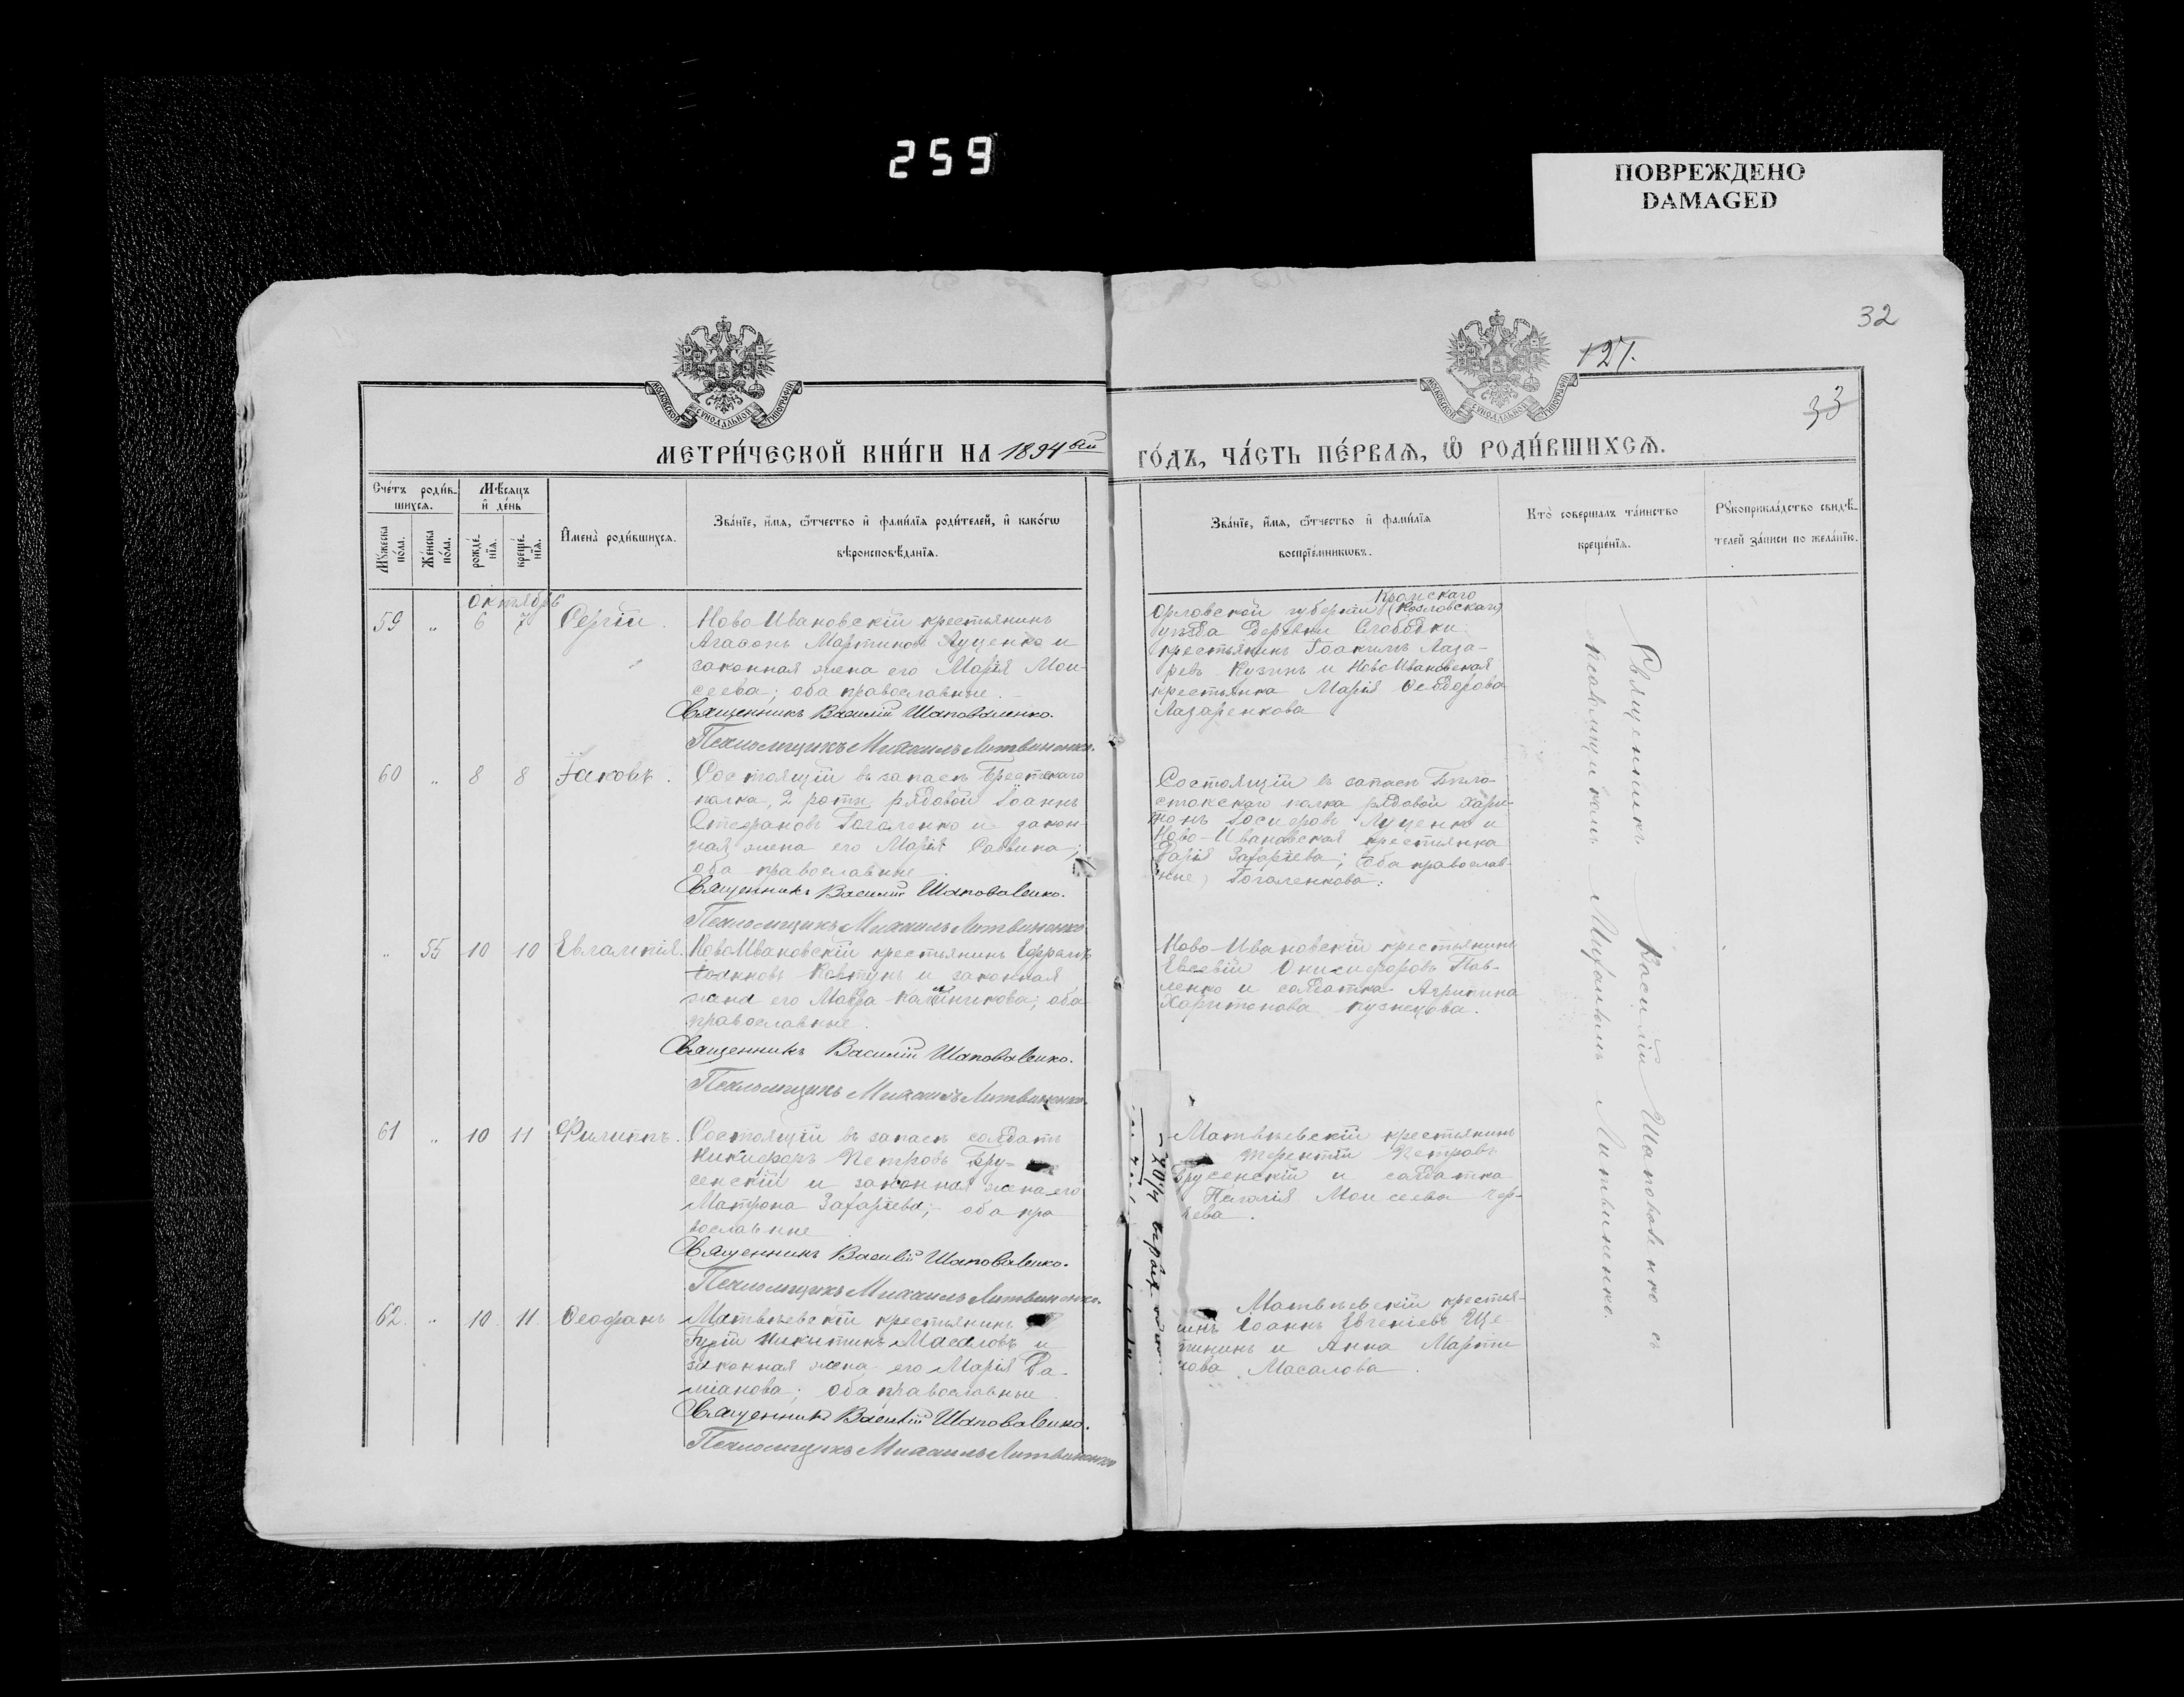 259
ПОВРЕЖДЕНО
DAMAGED
32
127.
33
МОСКОВСКОЙ СѴНОДАЛЬНОЙ ТИПОГРАФІИ
МОСКОВСКОЙ СѴНОДАЛЬНОЙ ТИПОГРАФІИ
МЕТРИ́ЧЕСКОЙ КНИ́ГИ НА 1894ый
ГО́ДЪ, ЧА́СТЬ ПЕ́РВАѦ, Ѡ҆ РОДИ́ВШИХСѦ.
Сче́тъ роди́в-
шихсѧ.
Мꙋ́жеска по́ла.
Же́нска по́ла.
Мѣ́сѧцъ
и҆ де́нь
рожде́-
нїѧ.
креще́-
нїѧ.
И҆мена̀ роди́вшихсѧ.
Зва́нїе, и҆́мѧ, ѻ҆́тчество и҆ фами́лїѧ роди́телей, и҆ како́гѡ
вѣроисповѣ́данїѧ.
Зва́нїе, и҆́мѧ, ѻ҆́тчество и҆ фами́лїѧ
воспрїе́мникѡвъ.
Кто̀ соверша́лъ та́инство
креще́нїѧ.
Рꙋкоприкла́дство свидѣ́-
телей за́писи по жела́нїю.
Октябрь
59 „ 6 7 Сергій.
Ново Ивановскій крестьянинъ
Агаѳонъ Мартиновъ Луценко и
законная жена его Марія Мои-
сеева; оба православные.
Священникъ Василій Шаповаленко.
Псаломщикъ Михаилъ Литвиненко.
Кромскаго
Орловской губерніи (Козловскаго)
уѣзда деревни Слободки
крестьянинъ Іоакимъ Лаза-
ревъ Кузинъ и Ново Ивановская
крестьянка Марія Ѳеодорова
Лазаренкова
60 „ 8 8 Іаковъ.
Состоящій въ запасѣ Брестскаго
полка, 2 роты рядовой Іоаннъ
Стефановъ Гогаленко и закон-
ная жена его Марія Саввина;
оба православные.
Священникъ Василій Шаповаленко.
Псаломщикъ Михаилъ Литвиненко
Состоящій въ запасѣ Бѣло-
стокскаго полка рядовой Хари-
тонъ Іосифовъ Луценко и
Ново-Ивановская крестьянка
Дарія Захаріева; (оба православ-
ные) Гогаленкова.
„ 55 10 10 Евлампія.
Ново Ивановскій крестьянинъ Ефремъ
Іоанновъ Ковтунъ и законная
жена его Мавра Калиникова; оба
православные.
Священникъ Василій Шаповаленко.
Псаломщикъ Михаилъ Литвиненко.
Ново-Ивановскій крестьянинъ
Евсевій Онисифоровъ Пав-
ленко и солдатка Агрипина
Харитонова Кузнецова.
61 „ 10 11 Филиппъ.
Состоящій въ запасѣ солдатъ
Никифоръ Петровъ Бру-
сенскій и законная жена его
Матрона Захаріева; оба пра
вославные.
Священникъ Василій Шаповаленко.
Псаломщикъ Михаилъ Литвиненко.
Матвѣевскій крестьянинъ
Терентій Петровъ
Брусенскій и солдатка
Пелагія Моисеева
62. „ 10. 11. Ѳеофанъ
Матвѣевскій крестьянинъ
Гурій Никитинъ Масаловъ и
законная жена его Марія Да-
міанова; оба православные
Священникъ Василій Шаповаленко.
Псаломщикъ Михаилъ Литвиненко
Матвѣевскій крестья-
нинъ Іоаннъ Евгеніевъ Ще-
тининъ и Анна Марти
нова Масалова.
Священникъ Василій Шаповаленко съ
псаломщикомъ Михаиломъ Литвиненко.